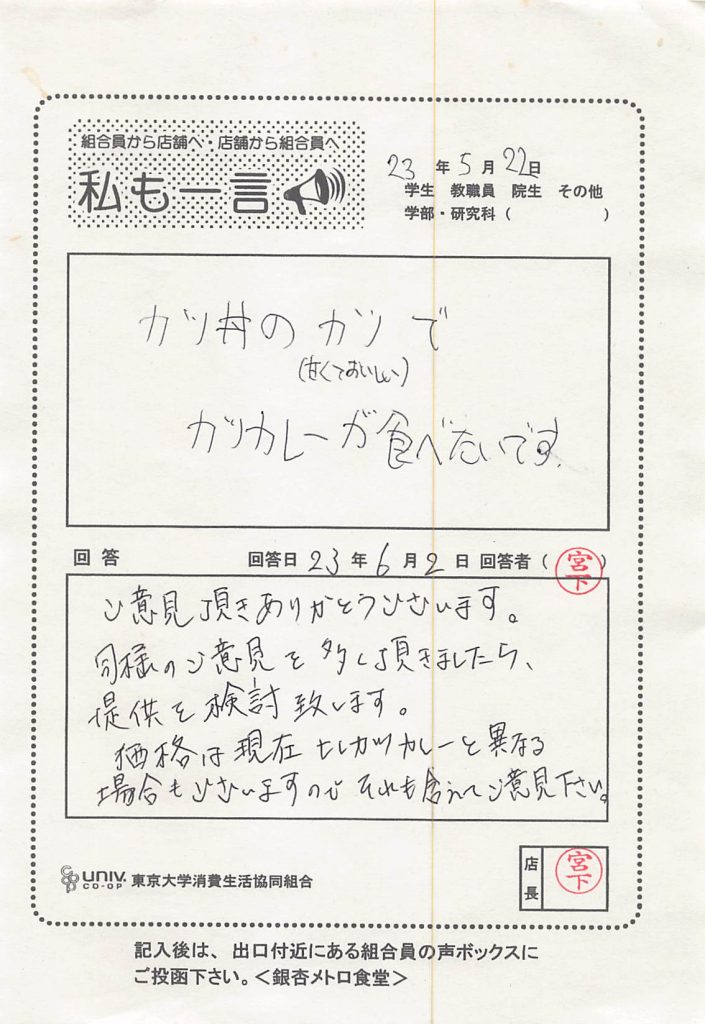 組合員から店舗へ・店舗から組合員へ
私も一言
23年5月22日
学生 教職員 院生 その他
学部・研究科( )
カツ丼のカツで
(甘くておいしい)
カツカレーが食べたいです。
回答 回答日 23年6月2日 回答者(宮下)
ご意見頂きありがとうございます。
同様のご意見を多く頂きましたら、
提供を検討致します。
価格は現在のヒレカツカレーと異なる
場合もございますのでそれも含えてご意見下さい。
UNIV. CO-OP 東京大学消費生活協同組合
店長 宮下
記入後は、出口付近にある組合員の声ボックスに
ご投函下さい。<銀杏メトロ食堂>